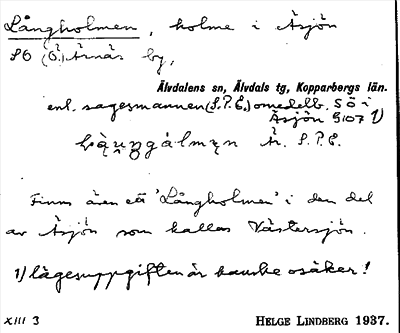 Långholmen, holme i Äsjön
SO (Ö.) Årnäs by,
Älvdalens sn, Älvdals tg, Kopparbergs län.
enl. sagesmannen (S.P.E.) omedelb. S ö i
Äsjön G107 1)
Är. S.P.E.
Finns även ett 'Långholmen' i den del
av Äsjön som kallas Västersjön.
1) lägesuppgiften är kanske osäker!
XIII 3
HELGE LINDBERG 1937.